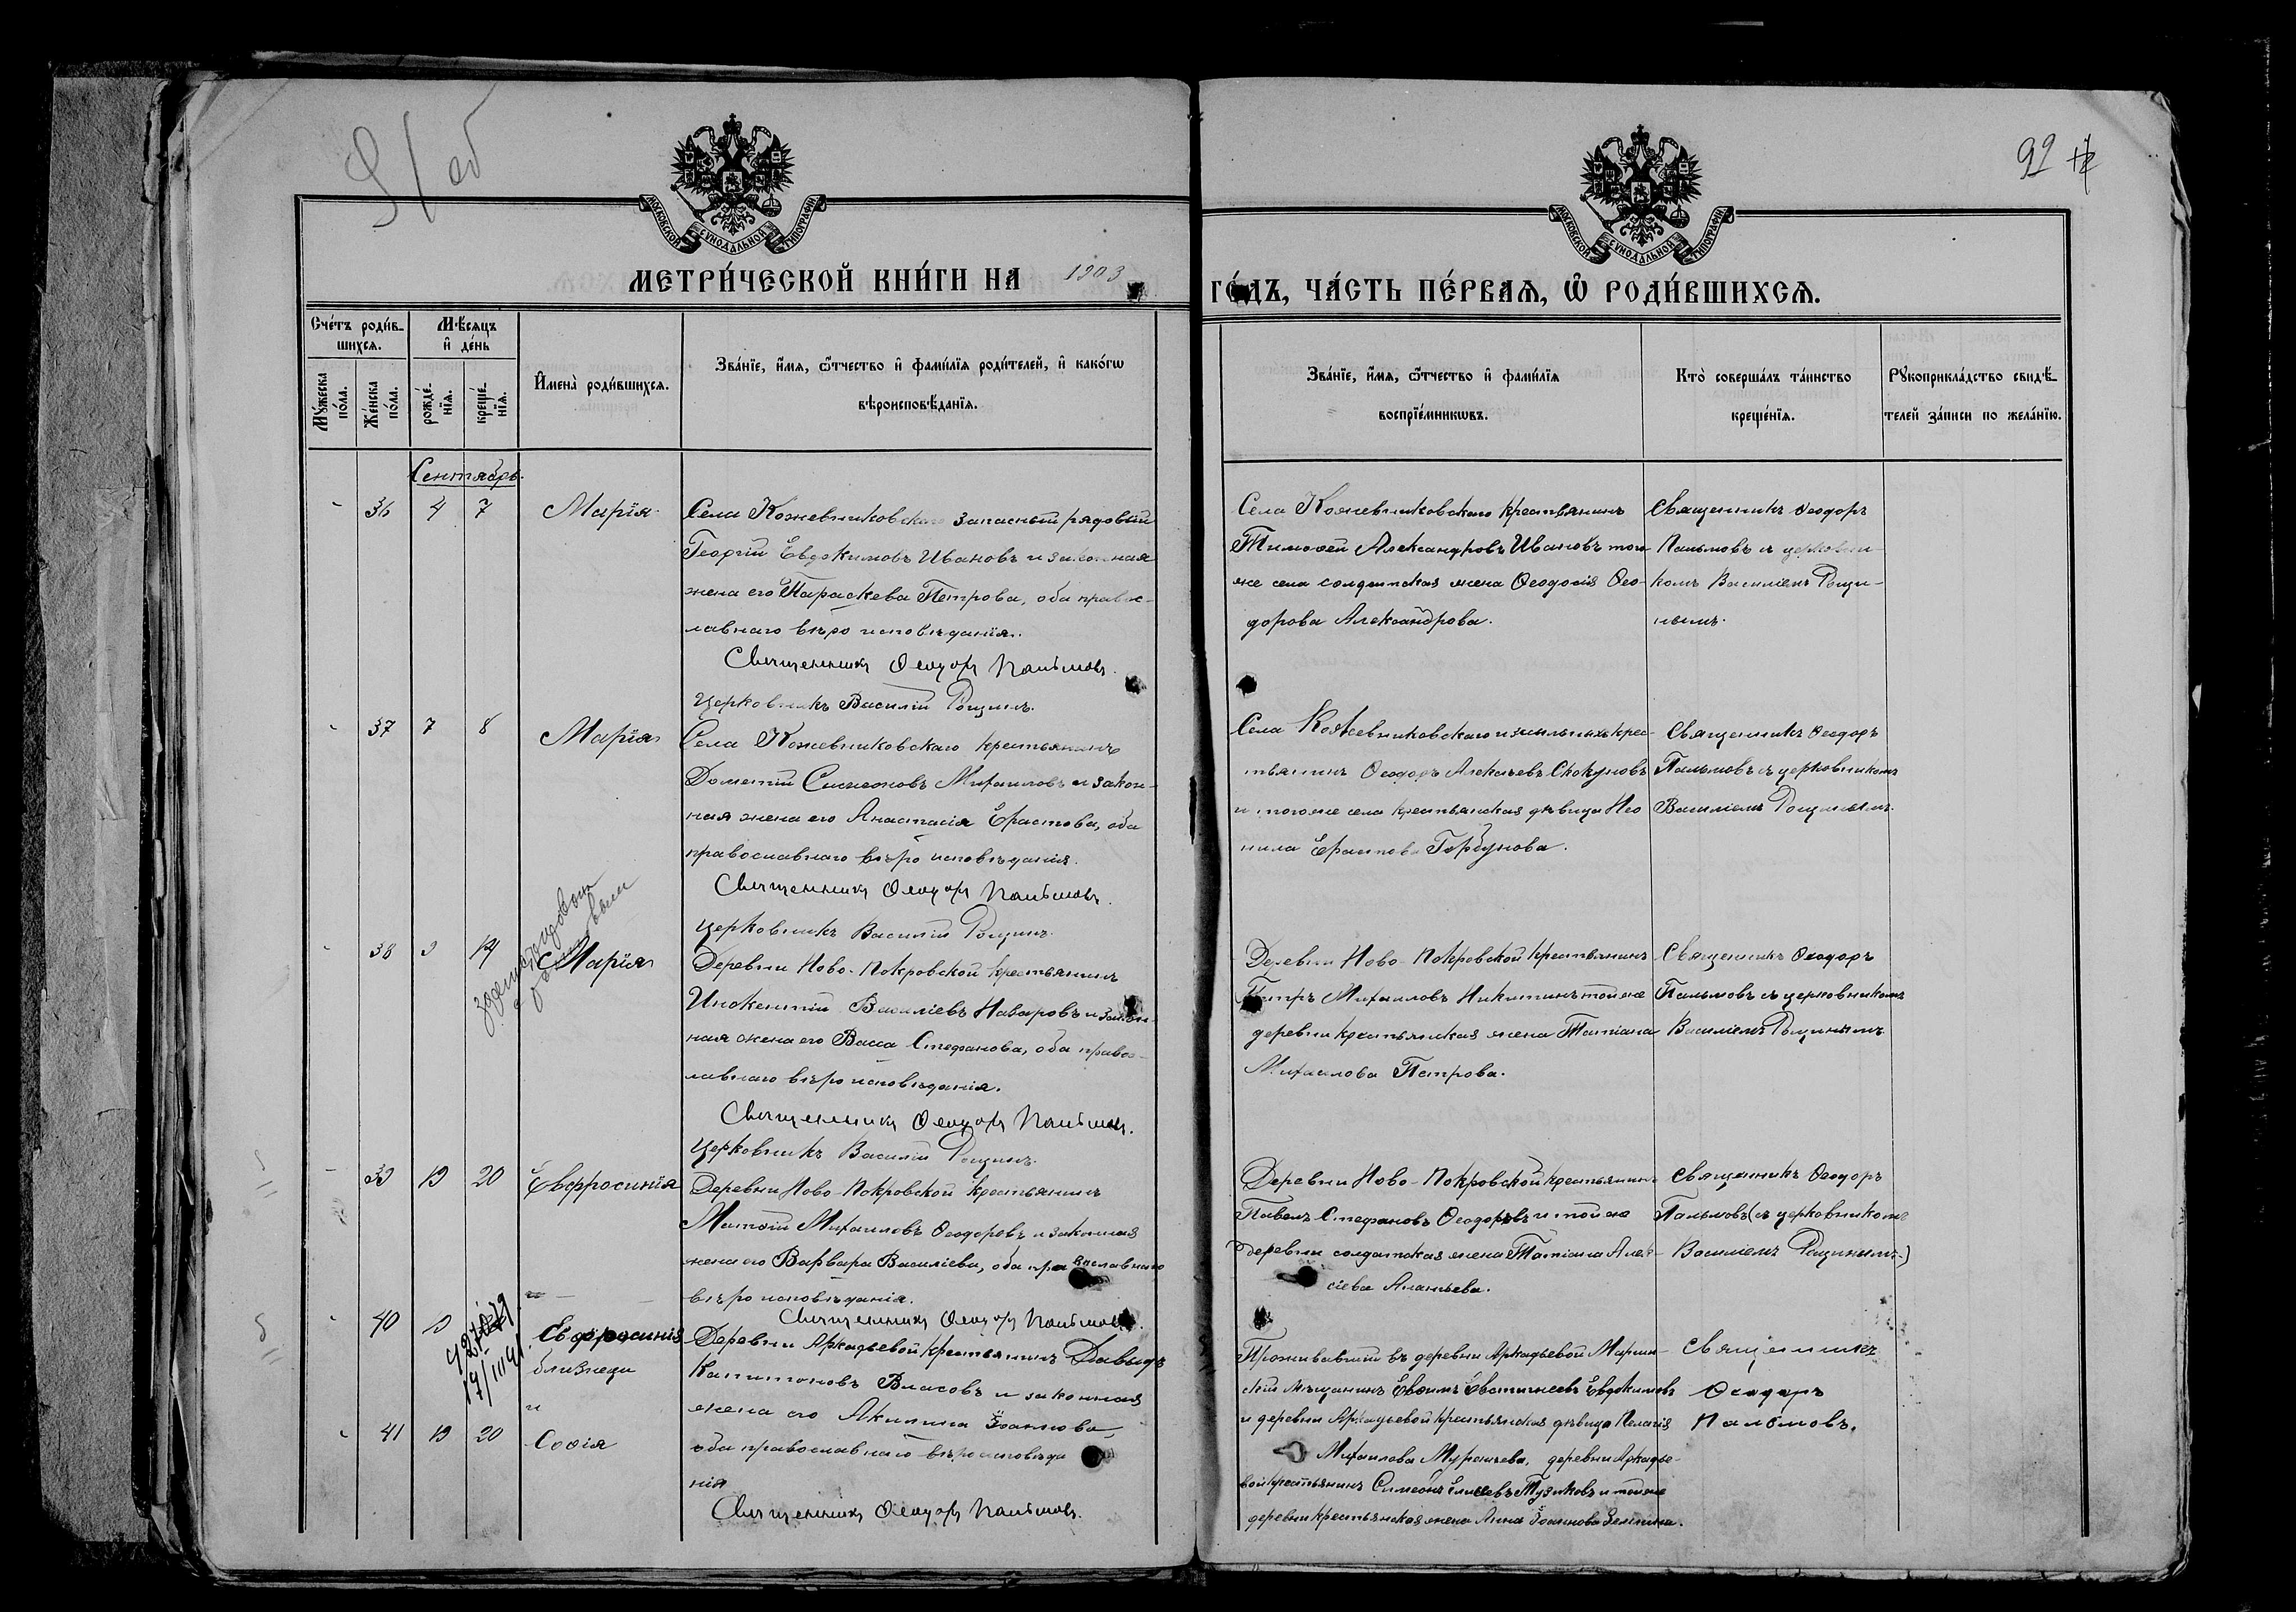 91 об
92
МОСКОВСКОЙ СѴНОДАЛЬНОЙ ТИПОГРАФІИ
МОСКОВСКОЙ СѴНОДАЛЬНОЙ ТИПОГРАФІИ
МЕТРИ́ЧЕСКОЙ КНИ́ГИ НА 1903
ГО́ДЪ, ЧА́СТЬ ПЕ́РВАѦ, Ѽ РОДИ́ВШИХСѦ.
Сче́тъ роди́в-
шихсѧ.
Мѣ́сѧцъ
и҆ де́нь
Мꙋ́жеска
по́ла.
Же́нска
по́ла.
рожде́-
нїѧ.
креще́-
нїѧ.
И҆мена̀ роди́вшихсѧ.
Зва́нїе, и҆́мѧ, ѻ҆́тчество и҆ фами́лїѧ роди́телей, и҆ како́гѡ
вѣроисповѣ́данїѧ.
Зва́нїе, и҆́мѧ, ѻ҆́тчество и҆ фами́лїѧ
воспрїе́мникѡвъ.
Кто̀ соверша́лъ та́инство
креще́нїѧ.
Рꙋкоприкла́дство свидѣ́-
телей за́писи по жела́нїю.
Сентябрь.
- 36 4 7 Марія
Села Кожевниковскаго запасный рядовый
Георгій Евдокимовъ Ивановъ и законная
жена его Параскева Петрова, оба правос-
лавнаго вѣроисповѣданія.
Священникъ Ѳеодоръ Пальмовъ.
Церковникъ Василій Рощинъ.
Села Кожевниковскаго крестьянинъ
Тимоѳей Александровъ Ивановъ той
же села солдатская жена Ѳеодосія Ѳео-
дорова Александрова.
Священникъ Ѳеодоръ
Пальмовъ съ церковни-
комъ Василіемъ Рощи-
нымъ.
- 37 7 8 Марія
Села Кожевниковскаго крестьянинъ
Дометій Симеоновъ Михаиловъ и закон-
ная жена его Анастасія Ерастова, оба
православнаго вѣроисповѣданія.
Священникъ Ѳеодоръ Пальмовъ.
Церковникъ Василій Рощинъ.
Села Кожевниковскаго изъ ссыльныхъ крес-
тьянинъ Ѳеодоръ Алексѣевъ Скокуновъ
и тогоже села крестьянская дѣвица Нео
нила Ерастова Горбунова.
Священникъ Ѳеодоръ
Пальмовъ съ церковникомъ
Василіемъ Рощинымъ.
- 38 9 14 Марія
Деревни Ново-Покровской крестьянинъ
Инокентій Василіевъ Назаровъ и закон-
ная жена его Васса Стефанова, оба правос-
лавнаго вѣроисповѣданія.
Священникъ Ѳеодоръ Пальмовъ.
Церковникъ Василій Рощинъ.
Деревни Ново-Покровской крестьянинъ
Петръ Михаиловъ Никитинъ той же
деревни крестьянская жена Татіана
Михаилова Петрова.
Священникъ Ѳеодоръ
Пальмовъ съ церковникомъ
Василіемъ Рощинымъ
- 39 19 20 Евфросинія
Деревни Ново-Покровской крестьянинъ
Матѳій Михаиловъ Ѳеодоровъ и законная
жена его Варвара Василіева, оба православнаго
вѣроисповѣданія.
Священникъ Ѳеодоръ Пальмовъ.
Деревни Ново-Покровской крестьянинъ
Павелъ Стефановъ Ѳеодоровъ и той же
деревни солдатская жена Татіана Алек-
сіева Ананьева.
Священникъ Ѳеодоръ
Пальмовъ (съ церковникомъ
Василіемъ Рощинымъ)
- 40 19 Евфросинія
близнецы
и
- 41 19 20 Софія
Деревни Аркадьевой крестьянинъ Давыдъ
Капитоновъ Власовъ и законная
жена его Акилина Іоаннова,
оба православнаго вѣроисповѣда
нія
Священникъ Ѳеодоръ Пальмовъ.
Проживавшій въ деревни Аркадьевой Маріин-
скій мѣщанинъ Евѳимъ Евстигнеевъ Евдокимовъ
и деревни Аркадьевой крестьянская дѣвица Пелагія
Михаилова деревни Аркадье-
вой крестьянинъ Симеонъ Елисеевъ Тузиковъ и той же
деревни крестьянская жена Анна Іоаннова
Священникъ
Ѳеодоръ
Пальмовъ.